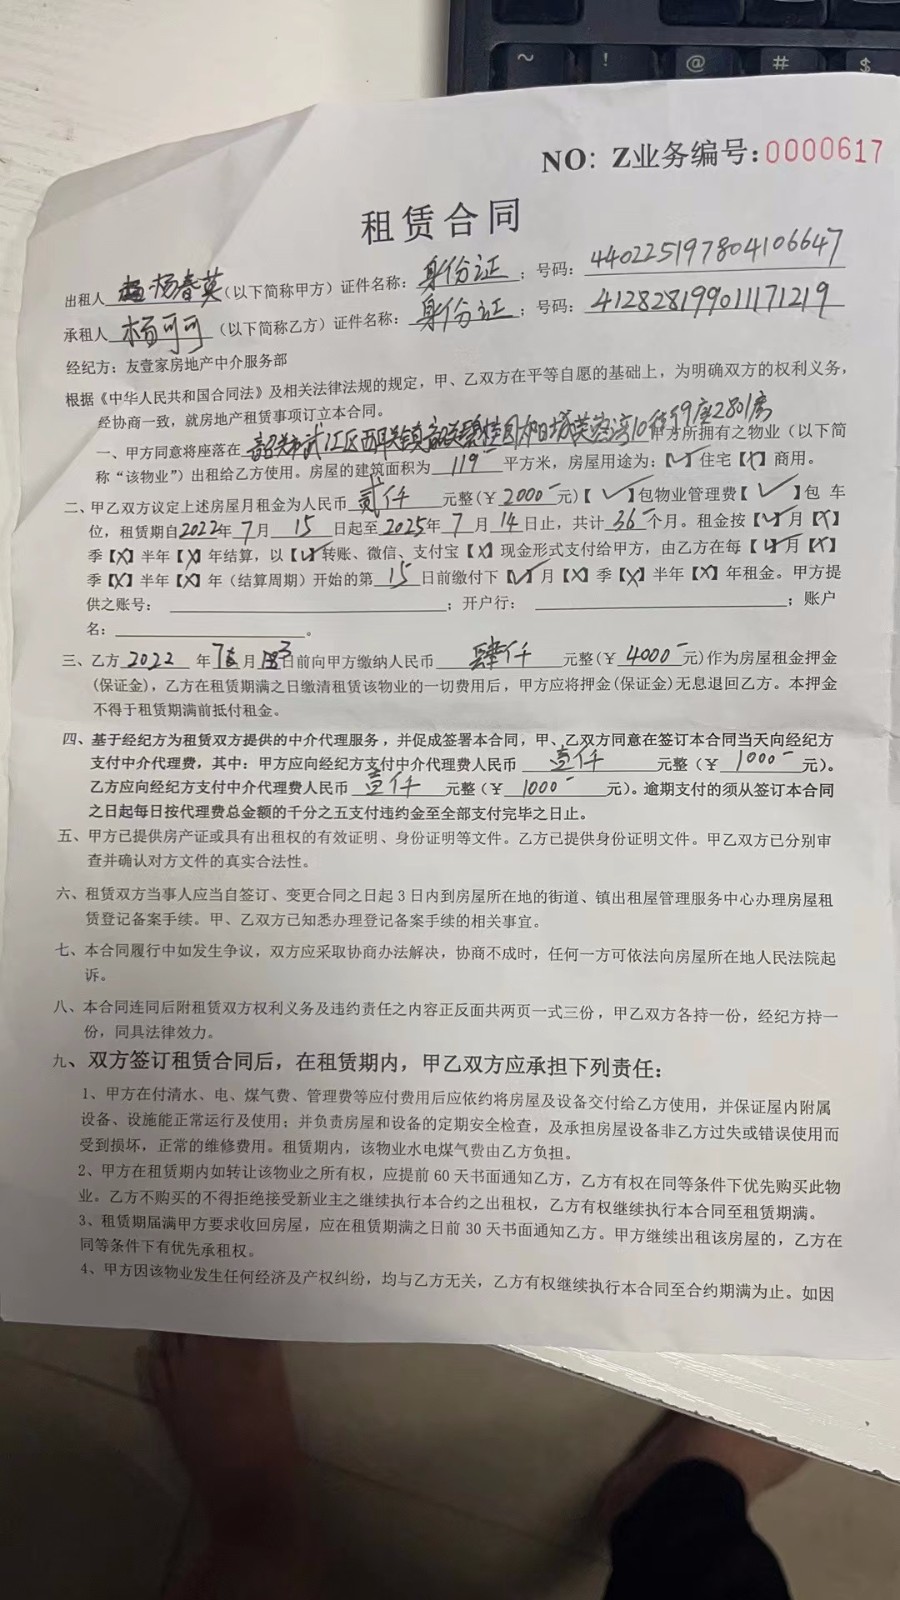 ~ ! @ # $
NO: Z业务编号:0000617
租赁合同
出租人 杨春英(以下简称甲方)证件名称:身份证;号码:440225197804106647
承租人 杨可可(以下简称乙方)证件名称:身份证;号码:412828199011171219
经纪方:友壹家房地产中介服务部
根据《中华人民共和国合同法》及相关法律法规的规定,甲、乙双方在平等自愿的基础上,为明确双方的权利义务,
经协商一致,就房地产租赁事项订立本合同。
一、甲方同意将座落在 韶关市武江区西联镇韶关碧桂园太阳城芙蓉湾10街9座2801房 甲方所拥有之物业(以下简
称“该物业”)出租给乙方使用。房屋的建筑面积为 119 平方米,房屋用途为:【✓】住宅【X】商用。
二、甲乙双方议定上述房屋月租金为人民币 贰仟 元整(¥ 2000 元)【 ✓ 】包物业管理费【 ✓ 】包 车
位,租赁期自2022年 7月 15 日起至2025年 7 月 14日止,共计 36 个月。租金按【✓】月【X】
季【X】半年【X】年结算,以【✓】转账、微信、支付宝【X】现金形式支付给甲方,由乙方在每【✓】月【X】
季【X】半年【X】年(结算周期)开始的第 15 日前缴付下【✓】月【X】季【X】半年【X】年租金。甲方提
供之账号: ;开户行: ;账户
名: 。
三、乙方 2022 年 7 月 日前向甲方缴纳人民币 肆仟 元整(¥ 4000 元)作为房屋租金押金
(保证金),乙方在租赁期满之日缴清租赁该物业的一切费用后,甲方应将押金(保证金)无息退回乙方。本押金
不得于租赁期满前抵付租金。
四、基于经纪方为租赁双方提供的中介代理服务,并促成签署本合同,甲、乙双方同意在签订本合同当天向经纪方
支付中介代理费,其中:甲方应向经纪方支付中介代理费人民币 壹仟 元整(¥ 1000 元)。
乙方应向经纪方支付中介代理费人民币 壹仟 元整(¥ 1000 元)。逾期支付的须从签订本合同
之日起每日按代理费总金额的千分之五支付违约金至全部支付完毕之日止。
五、甲方已提供房产证或具有出租权的有效证明、身份证明等文件。乙方已提供身份证明文件。甲乙双方已分别审
查并确认对方文件的真实合法性。
六、租赁双方当事人应当自签订、变更合同之日起 3 日内到房屋所在地的街道、镇出租屋管理服务中心办理房屋租
赁登记备案手续。甲、乙双方已知悉办理登记备案手续的相关事宜。
七、本合同履行中如发生争议,双方应采取协商办法解决,协商不成时,任何一方可依法向房屋所在地人民法院起
诉。
八、本合同连同后附租赁双方权利义务及违约责任之内容正反面共两页一式三份,甲乙双方各持一份,经纪方持一
份,同具法律效力。
九、双方签订租赁合同后,在租赁期内,甲乙双方应承担下列责任:
1、甲方在付清水、电、煤气费、管理费等应付费用后应依约将房屋及设备交付给乙方使用,并保证屋内附属
设备、设施能正常运行及使用;并负责房屋和设备的定期安全检查,及承担房屋设备非乙方过失或错误使用而
受到损坏,正常的维修费用。租赁期内,该物业水电煤气费由乙方负担。
2、甲方在租赁期内如转让该物业之所有权,应提前 60 天书面通知乙方,乙方有权在同等条件下优先购买此物
业。乙方不购买的不得拒绝接受新业主之继续执行本合约之出租权,乙方有权继续执行本合同至租赁期满。
3、租赁期届满甲方要求收回房屋,应在租赁期满之日前 30 天书面通知乙方。甲方继续出租该房屋的,乙方在
同等条件下有优先承租权。
4、甲方因该物业发生任何经济及产权纠纷,均与乙方无关,乙方有权继续执行本合同至合约期满为止。如因